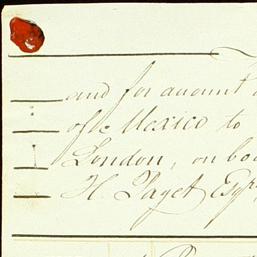 and for account
of Mexico to
London, on boa
H. Paget Esqr.